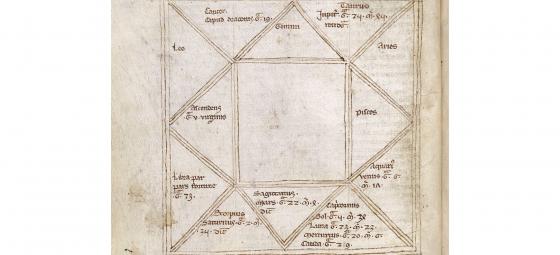 Cancer
Caput draconis. G. 19.
Gemini
Taurus
Jupiter G. 24. M. 54.
Leo
Aries
Ascendens
G. v. virginis
Pisces
Libra par
pars fortune
G. 73.
Aquarius
venus G. 6.
M. 12
Scorpius
Saturnus G. 2. M.
24. diei
Sagittarius.
mars G. 22. M. 8.
diei
Capricornus
Sol G. 4. M. 38
Luna 23. M. 22
mercurius G. 20. M. 6.
Cauda G. 29.